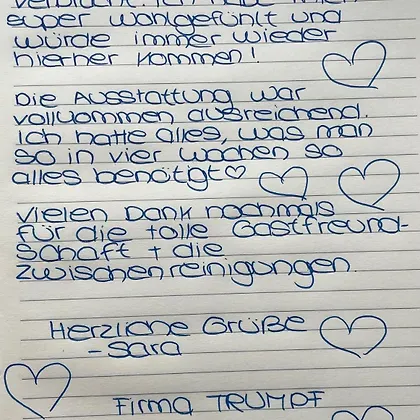 verbracht. Ich habe mich
super wohlgefühlt und
würde immer wieder
hierher kommen!
Die Ausstattung war
vollkommen ausreichend.
Ich hatte alles, was man
so in vier Wochen so
alles benötigt♡
Vielen Dank nochmals
für die tolle Gastfreund-
schaft + die
Zwischenreinigungen.
Herzliche Grüße
- Sara
Firma TRUMPF